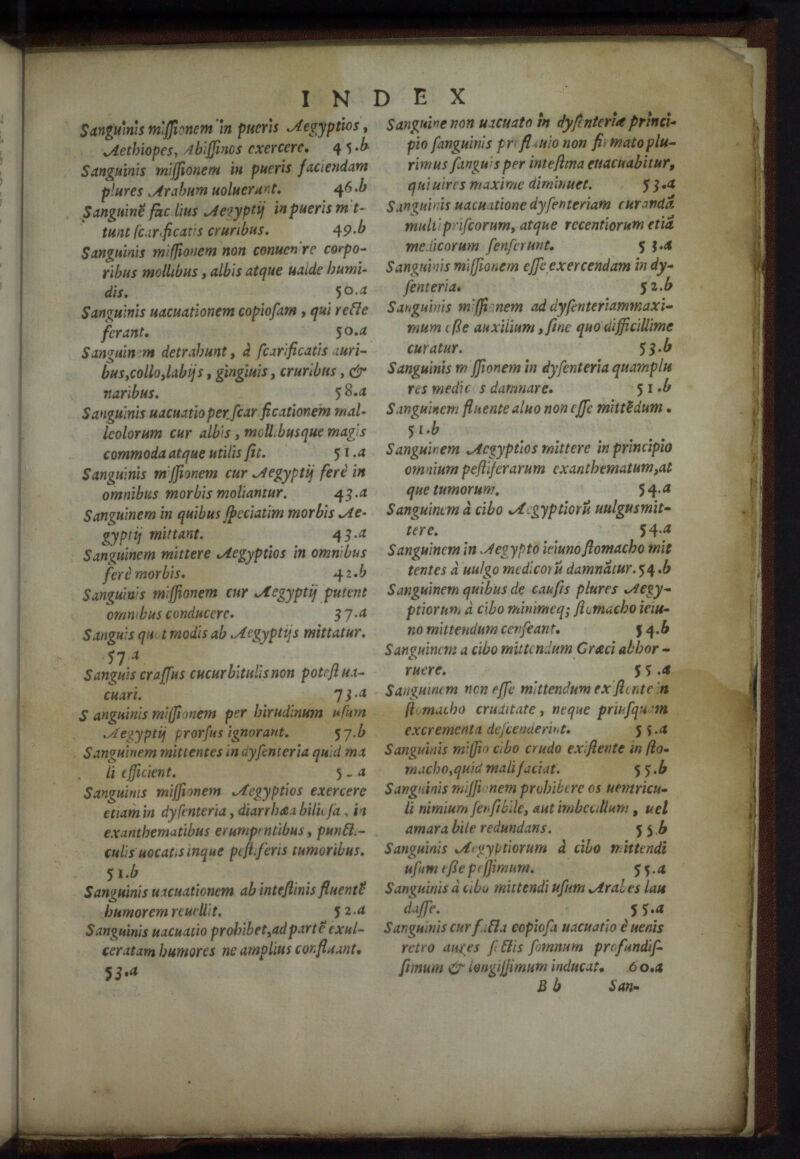 INDEX
Sanguinis missionem in pueris Aegyptios,
Aethiopes, Abissinos exercere. 45.b
Sanguinis missionem in pueris faciendam
plures Arabum uoluerunt. 46.b
Sanguinē fac lius Aegyptij in pueris mit-
tunt scarificatis cruribus. 49.b
Sanguinis missionem non conuenire corpo-
ribus mollibus, albis atque ualde humi-
dis. 50.a
Sanguinis uacuationem copiosam, qui recte
ferant. 50.a
Sanguinem detrahunt, à scarificatis auri-
bus,collo,labijs, gingiuis, cruribus, &
naribus. 58.a
Sanguinis uacuatio per scarificationem mal-
leolorum cur albis, mollibusque magis
commoda atque utilis sit. 51.a
Sanguinis missionem cur Aegyptij ferè in
omnibus morbis moliantur. 43.a
Sanguinem in quibus speciatim morbis Ae-
gyptij mittant. 43.a
Sanguinem mittere Aegyptios in omnibus
ferè morbis. 42.b
Sanguinis missionem cur Aegyptij putent
omnibus conducere. 37.a
Sanguis quot modis ab Aegyptijs mittatur.
57.a
Sanguis crassus cucurbitulis non potest ua-
cuari. 73.a
Sanguinis missionem per hirudinum usum
Aegyptij prorsus ignorant. 57.b
Sanguinem mittentes in dysenteria quid ma
li efficient. 5 a
Sanguinis missionem Aegyptios exercere
etiam in dysenteria, diarrhœa biliosa, in
exanthematibus erumpentibus, puncti-
culis uocatis inque pestiferis tumoribus.
51.b
Sanguinis uacuationem ab intestinis fluentē
humorem reuellit. 52.a
Sanguinis uacuatio prohibet,ad partē exul-
ceratam humores ne amplius confluant.
53.a
Sanguine non uacuato in dysenteriæ princi-
pio sanguinis profluuio non firmato plu-
rimus sanguis per intestina euacuabitur,
qui uires maxime diminuet. 53.a
Sanguinis uacuatione dysenteriam curandā
multi priscorum, atque recentiorum etiā
medicorum senserunt. 53.a
Sanguinis missionem esse exercendam in dy-
senteria. 52.b
Sanguinis missionem ad dysenteriam maxi-
mum esse auxilium, sine quo difficillime
curatur. 53.b
Sanguinis missionem in dysenteria quamplu
res medicos damnare. 51.b
Sanguinem fluente aluo non esse mittēdum.
51.b
Sanguinem Aegyptios mittere in principio
omnium pestiferarum exanthematum,at
que tumorum. 54.a
Sanguinem à cibo Aegyptiorū uulgus mit-
tere. 54.a
Sanguinem in Aegypto ieiuno stomacho mit
tentes à uulgo medicorū damnātur. 54.b
Sanguinem quibus de causis plures Aegy-
ptiorum à cibo minimeq; stomacho ieiu-
no mittendum censeant. 54.b
Sanguinem a cibo mittendum Græci abhor-
ruere. 55.a
Sanguinem non esse mittendum existente in
stomacho cruditate, neque priusquam
excrementa descenderint. 55.a
Sanguinis missio cibo crudo existente in sto-
macho,quid mali faciat. 55.b
Sanguinis missionem prohibere os uentricu-
li nimium sensibile, aut imbecillum, uel
amara bile redundans. 55.b
Sanguinis Aegyptiorum à cibo mittendi
usum esse pessimum. 55.a
Sanguinis à cibo mittendi usum Arabes lau
dasse. 55.a
Sanguinis cur facta copiosa uacuatio è uenis
retro aures sectis somnum profundis-
simum & longissimum inducat. 60.a
Bb San-